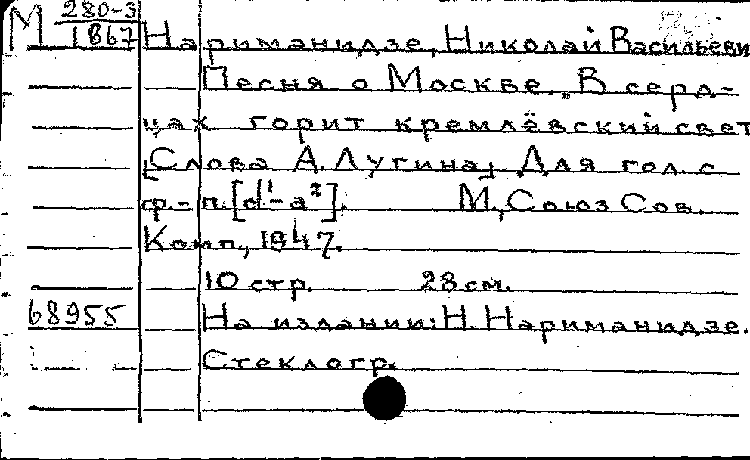 М 280-3
1867
Нариманидзе, Николай Васильеви
Песня о Москве. "В серд-
цах горит кремлёвский свет
[Слова А. Лугина] Для гол. с
ф.-п. [d¹-a²]. М., Союз Сов.
Комп., 1947.
10 стр. 28 см.
68955 На издании: Н. Нариманидзе.
Стеклогр.